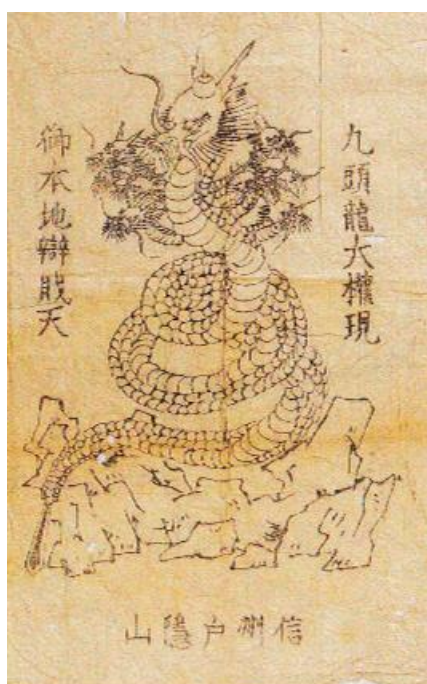 九頭龍大權現
御本地辯財天
信州戸隱山